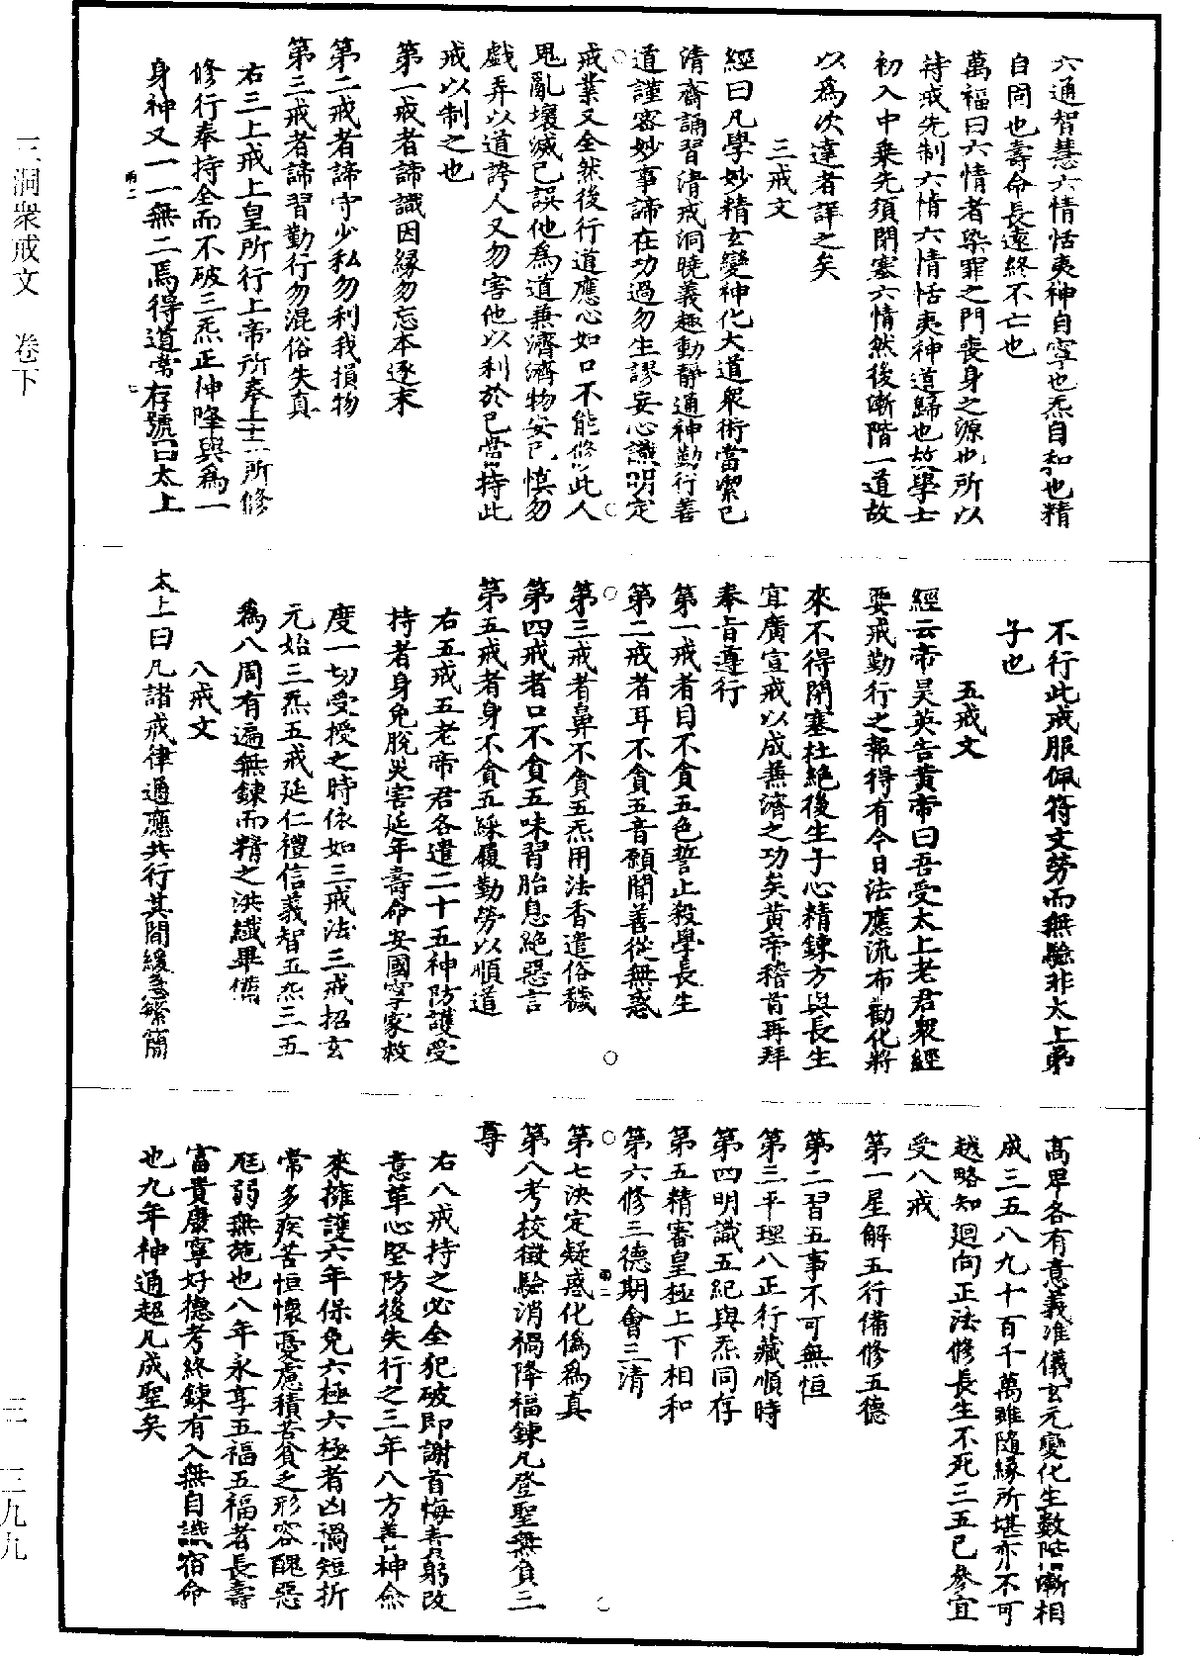 六通智慧六情恬夷神自寧也炁自和也精
自固也壽命長遠終不亡也
萬福曰六情者染罪之門喪身之源也所以
持戒先制六情六情恬夷神道歸也故學士
初入中乗先須閉塞六情然後漸階一道故
以為次達者詳之矣
三戒文
經曰凡學妙精玄變神化大道衆術當潔己
清齋誦習清戒洞曉義趣動靜通神勤行善
道謹密妙事諦在功過勿生謬妄心識明定
戒業又全然後行道應心如口不能修此人
鬼亂壞滅己誤他為道兼濟濟物安己慎勿
戲弄以道誇人又勿害他以利於己當持此
戒以制之也
第一戒者諦識因緣勿忘本逐末
第二戒者諦守少私勿利我損物
第三戒者諦習勤行勿混俗失真
右三上戒上皇所行上帝所奉上士所修
修行奉持全而不破三炁正神降與為一
身神又一一無二焉得道常存號曰太上
不行此戒服佩符文勞而無驗非太上弟
子也
五戒文
經云帝昊英告黄帝曰吾受太上老君衆經
要戒勤行之報得有今日法應流布勸化將
來不得閉塞杜絶後生子心精鍊方與長生
宜廣宣戒以成兼濟之功矣黄帝稽首再拜
奉旨遵行
第一戒者目不貪五色誓止殺學長生
第二戒者耳不貪五音願聞善從無惑
第三戒者鼻不貪五炁用法香遣俗穢
第四戒者口不貪五味習胎息絶惡言
第五戒者身不貪五綵履勤勞以順道
右五戒五老帝君各遣二十五神防護受
持者身免脫災害延年壽命安國寧家救
度一切受授之時依如三戒法三戒招玄
元始三炁五戒延仁禮信義智五炁三五
為八周有遍無鍊而精之洪纖畢備
八戒文
太上曰凡諸戒律通應共行其間緩急繁簡
高卑各有意義准儀玄元變化生數階漸相
成三五八九十百千萬雖隨緣所堪亦不可
越略知迴向正法修長生不死三五已參宜
受八戒
第一星解五行備修五德
第二習五事不可無恒
第三平理八正行藏順時
第四明識五紀與炁同存
第五精審皇極上下相和
第六修三德期會三清
第七決定疑惑化偽為真
第八考校徵驗消禍降福鍊凡登聖無負三
尊
右八戒持之必全犯破即謝首悔責躬改
意革心堅防後失行之三年八方善神僉
來擁護六年保免六極六極者凶禍短折
常多疾苦恒懷憂慮積苦貧乏形容醜惡
尫弱無施也八年永享五福五福者長壽
富貴康寧好德考終鍊有入無自識宿命
也九年神通超凡成聖矣
三洞衆戒文 卷下
三 三九九